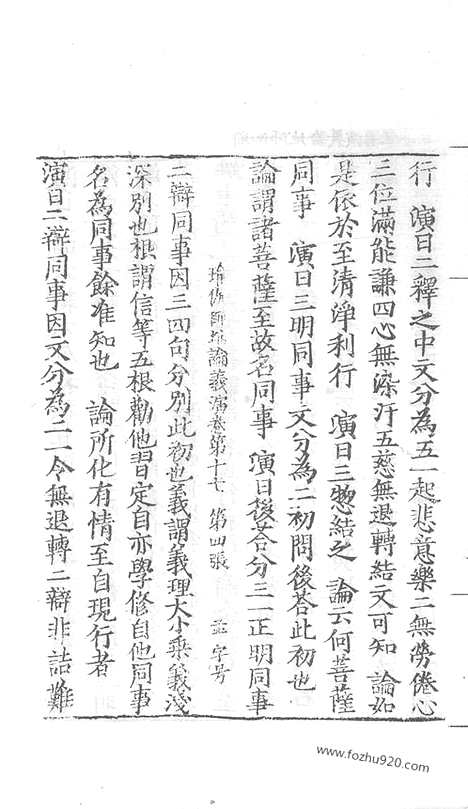 行　演曰二釋之中文分為五一起悲意樂二無勞倦心
三位滿能謙四心無染汙五慈無退轉結文可知　論如
是依於至清淨利行　演曰三惣結之　論云何菩薩
同事　演曰三明同事文分為二初問後荅此初也
論謂諸菩薩至故名同事　演曰後荅分三一正明同事
瑜伽師地論義演卷第十七　第四張　　字号
二辯同事因三四句分別此初也義謂義理大小乘義淺
深別也根謂信等五根勸他習定自亦學修自他同事
名為同事餘准知也　論所化有情至自現行者
演曰二辯同事因文分為二一令無退轉二辯非詰難
www.fozhu920.com